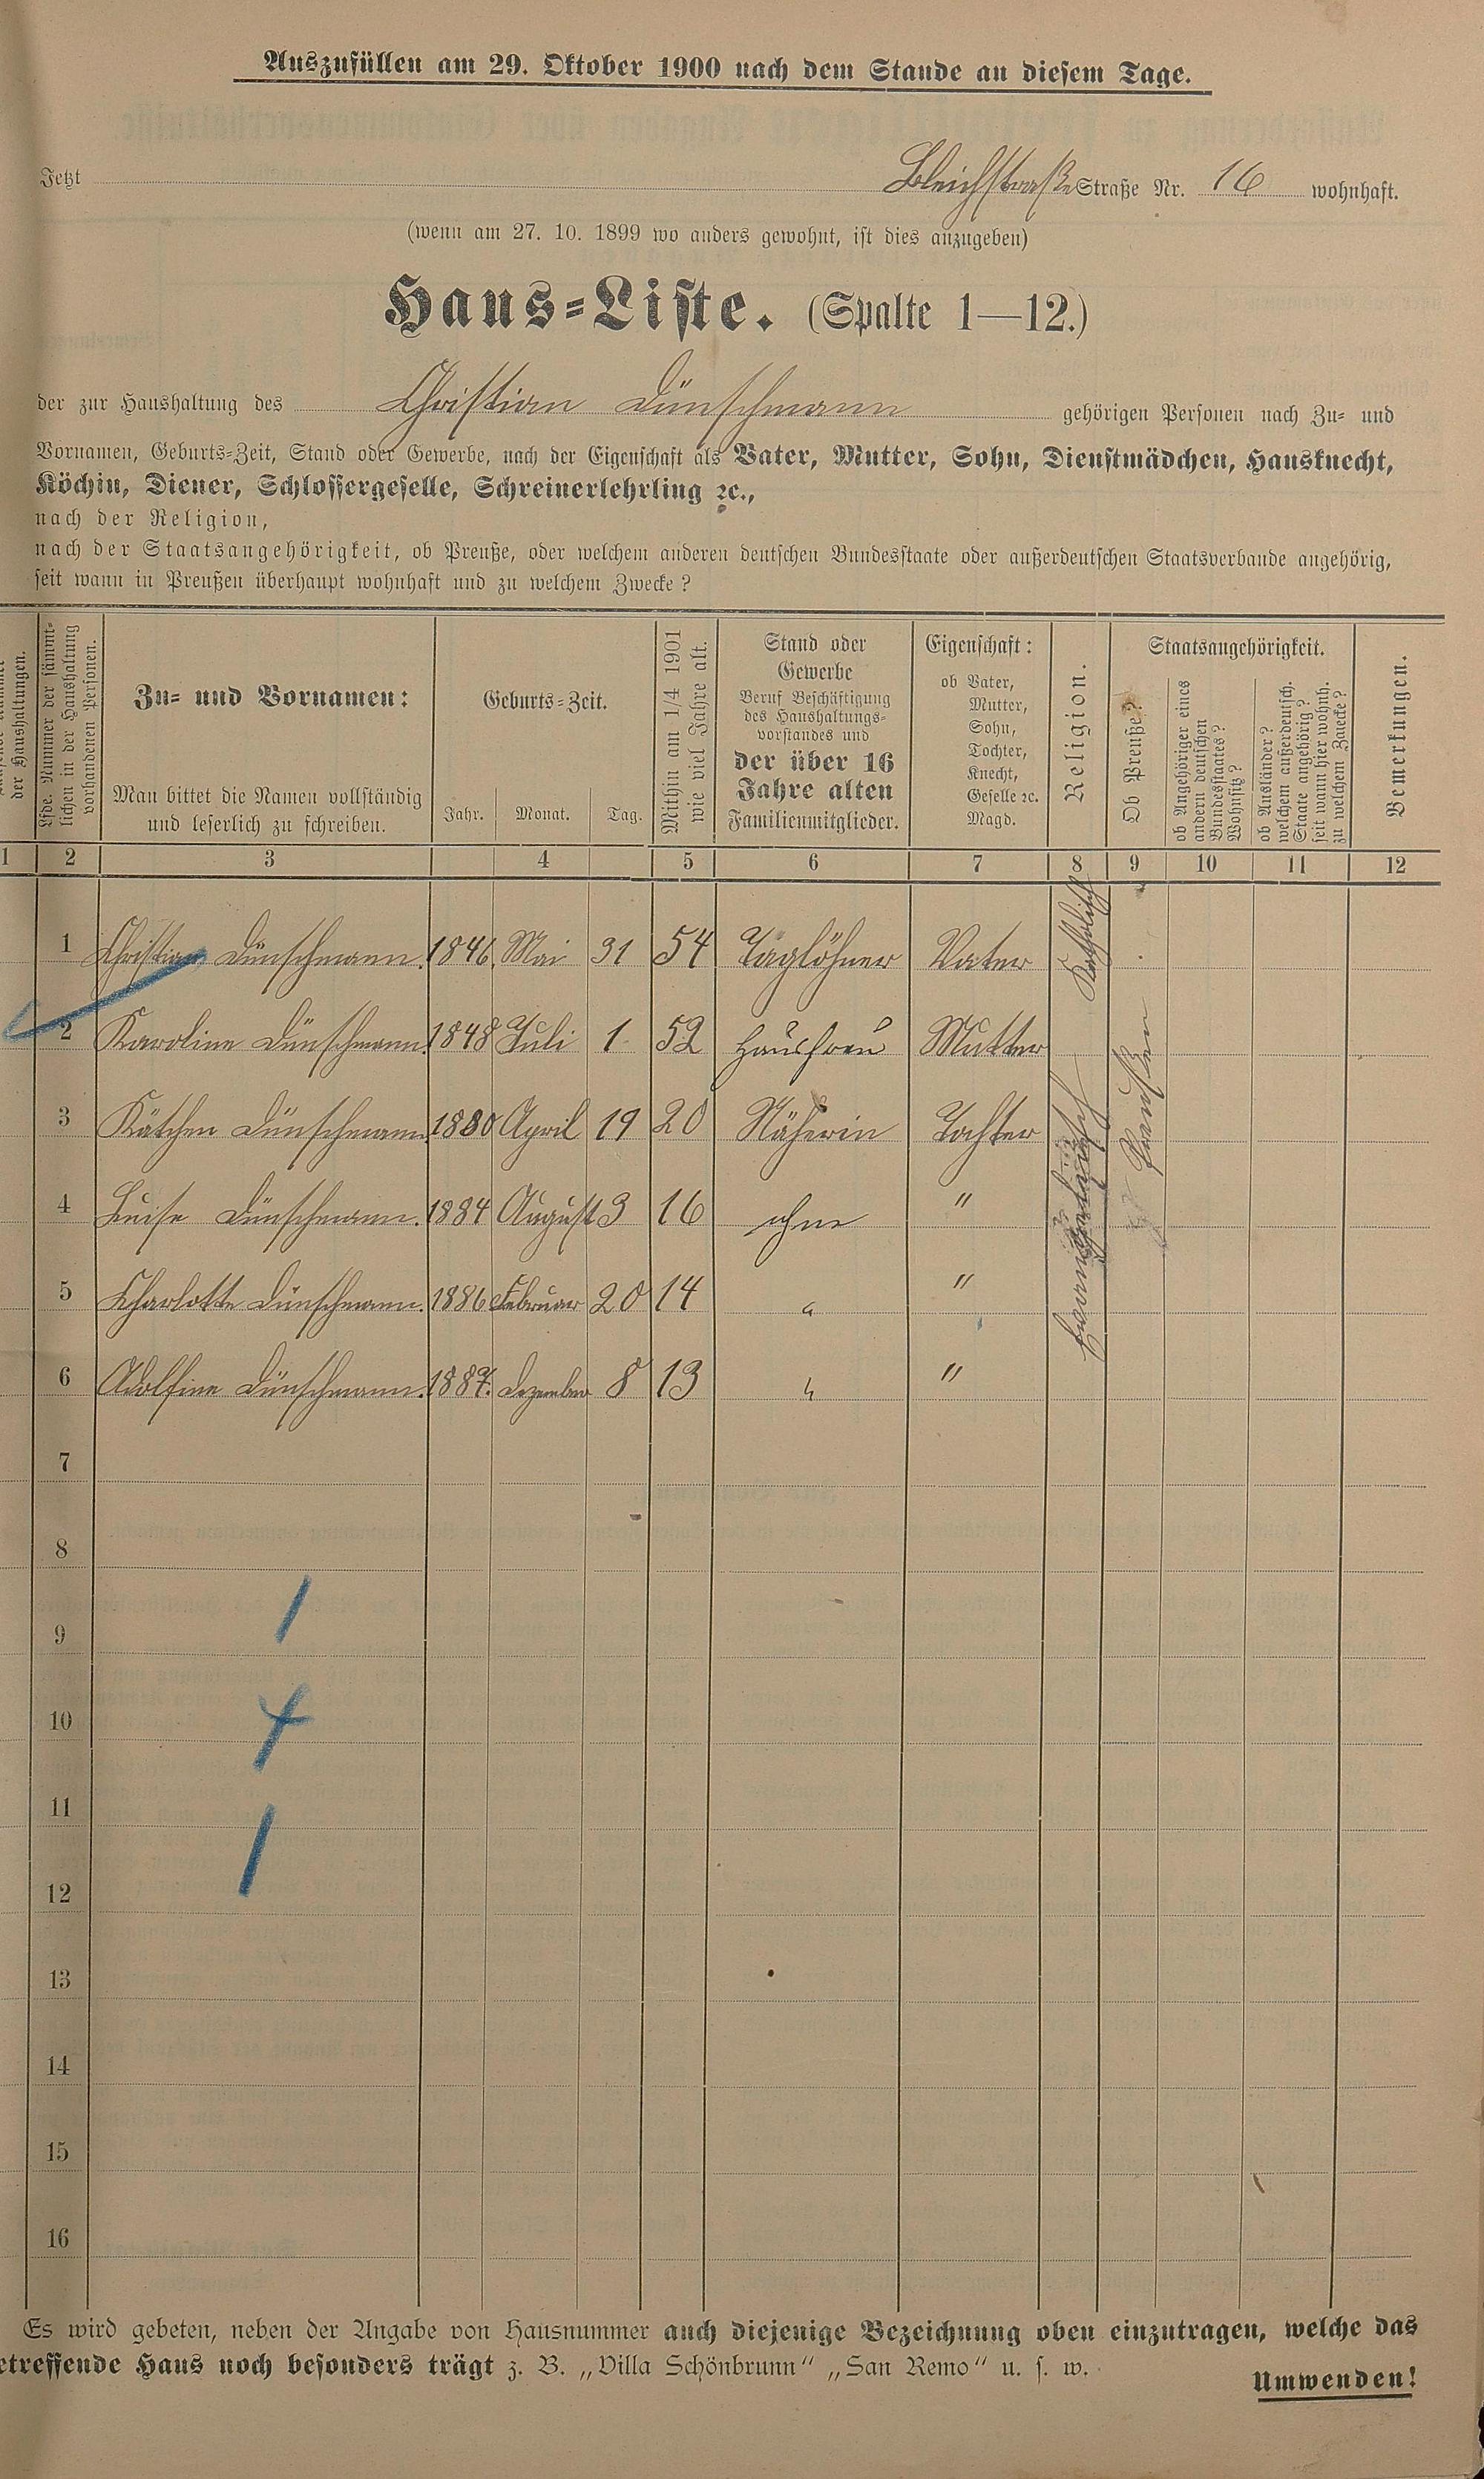 Auszufüllen am 29. Oktober 1900 nach dem Stande an diesem Tage.
Jetzt Bleichstraße Straße Nr. 16 wohnhaft.
(wenn am 27. 10. 1899 wo anders gewohnt, ist dies anzugeben)
Haus-Liste. (Spalte 1—12.)
der zur Haushaltung des Christian Dünschmann gehörigen Personen nach Zu- und
Vornamen, Geburts-Zeit, Stand oder Gewerbe, nach der Eigenschaft als Vater, Mutter, Sohn, Dienstmädchen, Hausknecht,
Köchin, Diener, Schlossergeselle, Schreinerlehrling ꝛc.,
nach der Religion,
nach der Staatsangehörigkeit, ob Preuße, oder welchem anderen deutschen Bundesstaate oder außerdeutschen Staatsverbande angehörig,
seit wann in Preußen überhaupt wohnhaft und zu welchem Zwecke?
der Haushaltungen.
Lfde. Nummer der sämmt-
lichen in der Haushaltung
vorhandenen Personen.
Zu- und Vornamen:
Man bittet die Namen vollständig
und leserlich zu schreiben.
Geburts-Zeit.
Jahr. Monat. Tag.
Mithin am 1/4 1901
wie viel Jahre alt.
Stand oder
Gewerbe
Beruf Beschäftigung
des Haushaltungs-
vorstandes und
der über 16
Jahre alten
Familienmitglieder.
Eigenschaft:
ob Vater,
Mutter,
Sohn,
Tochter,
Knecht,
Geselle ꝛc.
Magd.
Religion.
Staatsangehörigkeit.
Ob Preuße?
ob Angehöriger eines
andern deutschen
Bundesstaates?
Wohnsitz?
ob Ausländer?
welchem außerdeutsch.
Staate angehörig?
seit wann hier wohnh.
zu welchem Zwecke?
Bemerkungen.
1 2 3 4 5 6 7 8 9 10 11 12
1 Christian Dünschmann. 1846. Mai 31 54 Taglöhner Vater Katholisch
2 Karoline Dünschmann. 1848 Juli 1 52 Hausfrau Mutter
3 Kätchen Dünschmann 1880 April 19 20 Näherin Tochter Evangelisch Preußen
4 Luise Dünschmann. 1884 August 3 16 ohne "
5 Charlotte Dünschmann. 1886 Februar 20 14 " "
6 Adolfine Dünschmann. 1887. Dezember 8 13 " "
7
8
9
10
11
12
13
14
15
16
1
4
1
Es wird gebeten, neben der Angabe von Hausnummer auch diejenige Bezeichnung oben einzutragen, welche das
etreffende Haus noch besonders trägt z. B. „Villa Schönbrunn" „San Remo" u. s. w.
Umwenden!